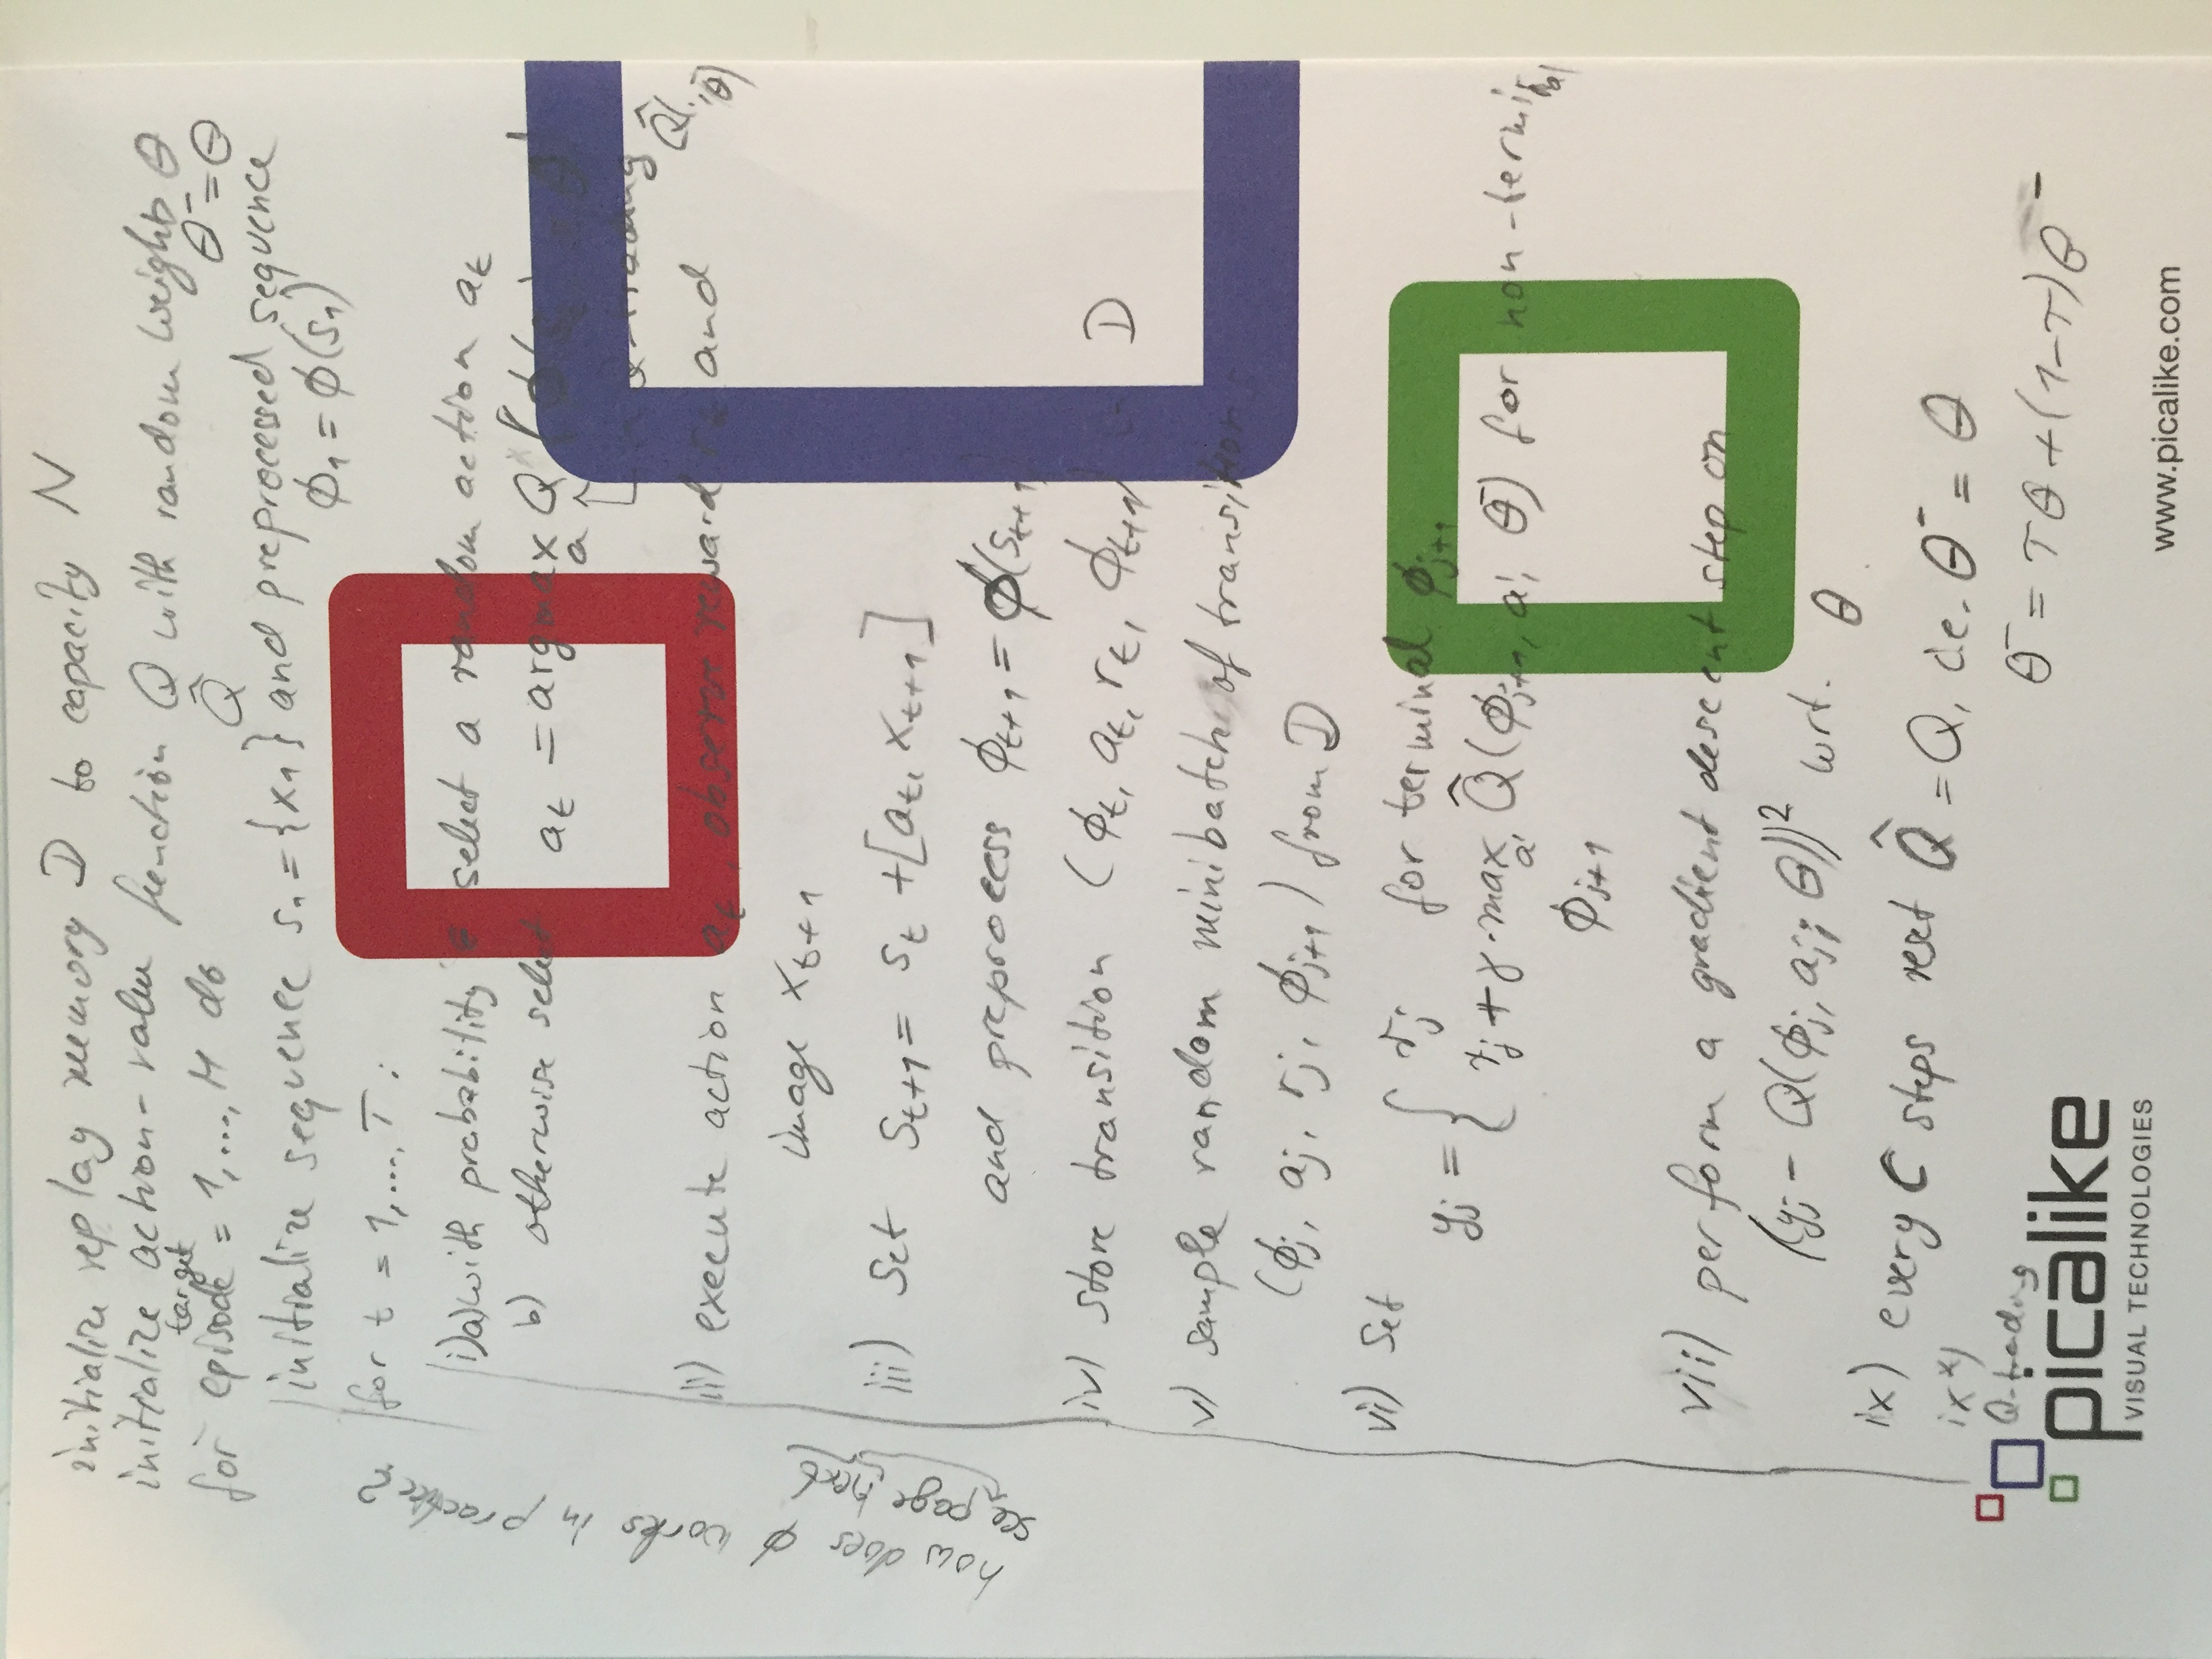 initialize replay memory D to capacity N
initialize action-value function Q with random weights θ
target Q̂ θ⁻ = θ
for episode = 1,..., M do
initialize sequence s₁ = {x₁} and preprocessed sequence
ϕ₁ = ϕ(s₁)
for t = 1,..., T:
i) a) with probability ε select a random action a_t
b) otherwise select a_t = argmax_a Q* (ϕ(s_t) θ)
in Q-trading
Q̂(.,θ⁻)
ii) execute action a_t, observe reward r_t and
image x_{t+1}
iii) Set s_{t+1} = s_t + [a_t, x_{t+1}]
and preprocess ϕ_{t+1} = ϕ(s_{t+1}
iv) store transition (ϕ_t, a_t, r_t, ϕ_{t+1}) in D
v) sample random minibatch of transitions
(ϕ_j, a_j, r_j, ϕ_{j+1}) from D
vi) Set
y_j = { r_j for terminal ϕ_{j+1}
r_j + γ · max_{a'} Q̂(ϕ_{j+1}, a', θ⁻) for non-terminal
ϕ_{j+1}
vii) perform a gradient descent step on
(y_j - Q(ϕ_j, a_j; θ))² wrt. θ
ix) every C steps reset Q̂ = Q, i.e. θ⁻ = θ
ix*)
Q-trading
θ⁻ = τθ + (1-τ)θ⁻
how does ϕ works in practice?
see page next
picalike
VISUAL TECHNOLOGIES
www.picalike.com